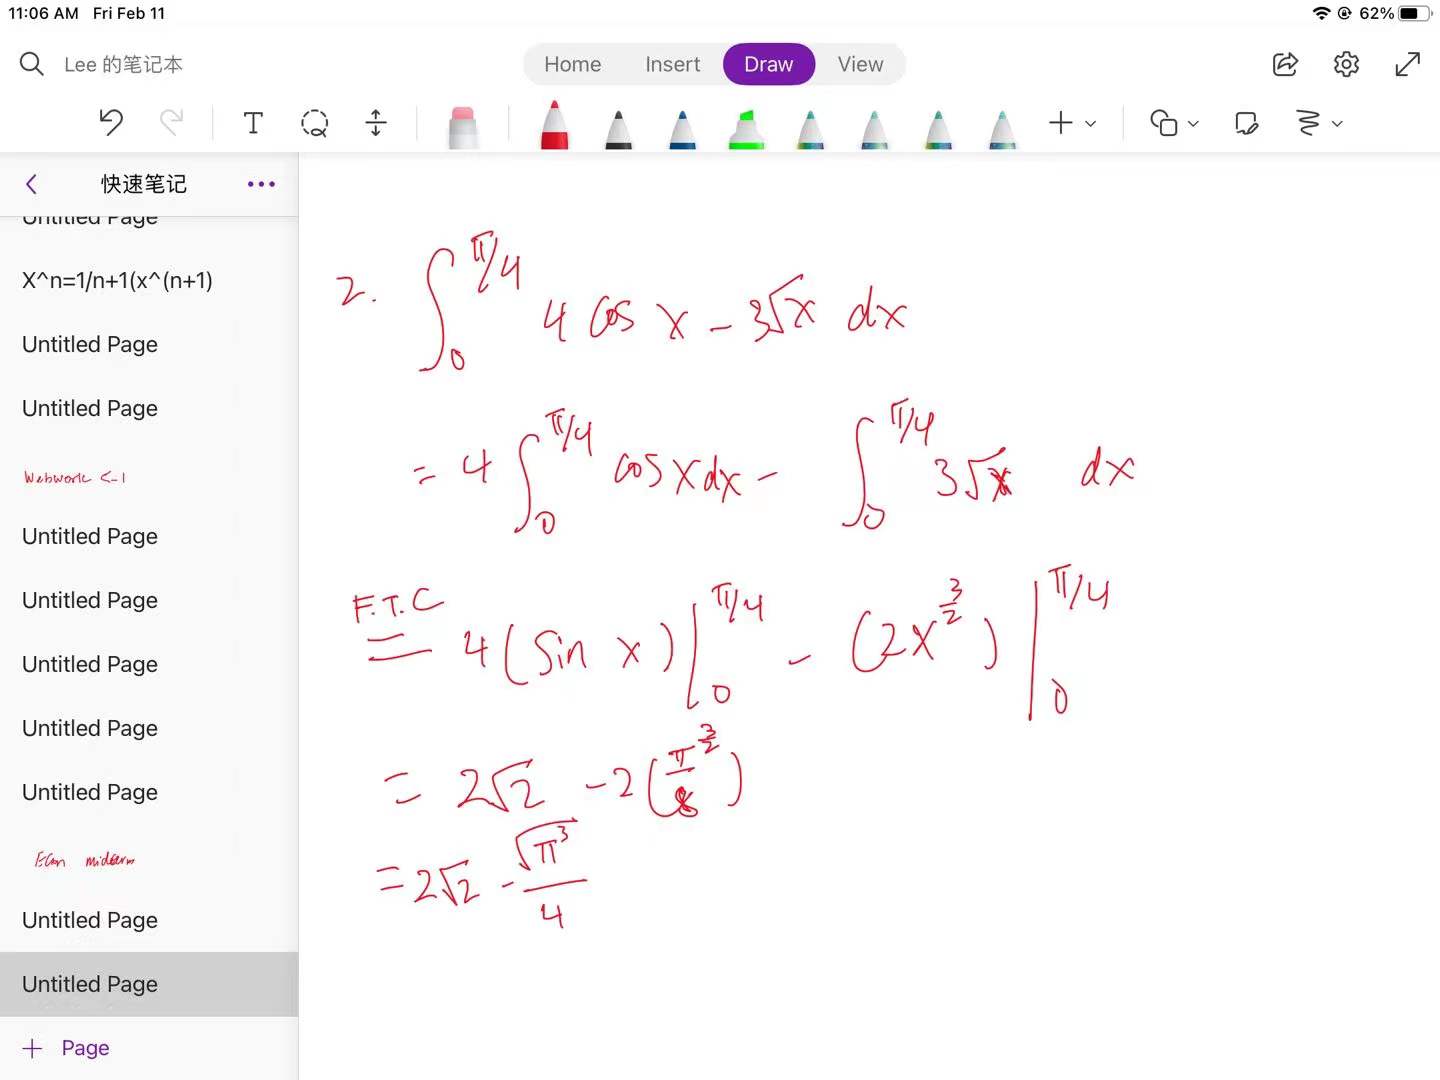 11:06 AM Fri Feb 11
62%
Lee 的笔记本
Home Insert Draw View
T
快速笔记
Untitled Page
X^n=1/n+1(x^(n+1)
Untitled Page
Untitled Page
Webwork C-1
Untitled Page
Untitled Page
Untitled Page
Untitled Page
Untitled Page
Econ midterm
Untitled Page
Untitled Page
+ Page
2. ∫₀^{π/4} 4 cos x - 3√x dx
= 4 ∫₀^{π/4} cos x dx - ∫₀^{π/4} 3√x dx
F.T.C
= 4(Sin x)|₀^{π/4} - (2x^{3/2})|₀^{π/4}
= 2√2 - 2(π^{3/2}/8)
= 2√2 - √π³/4